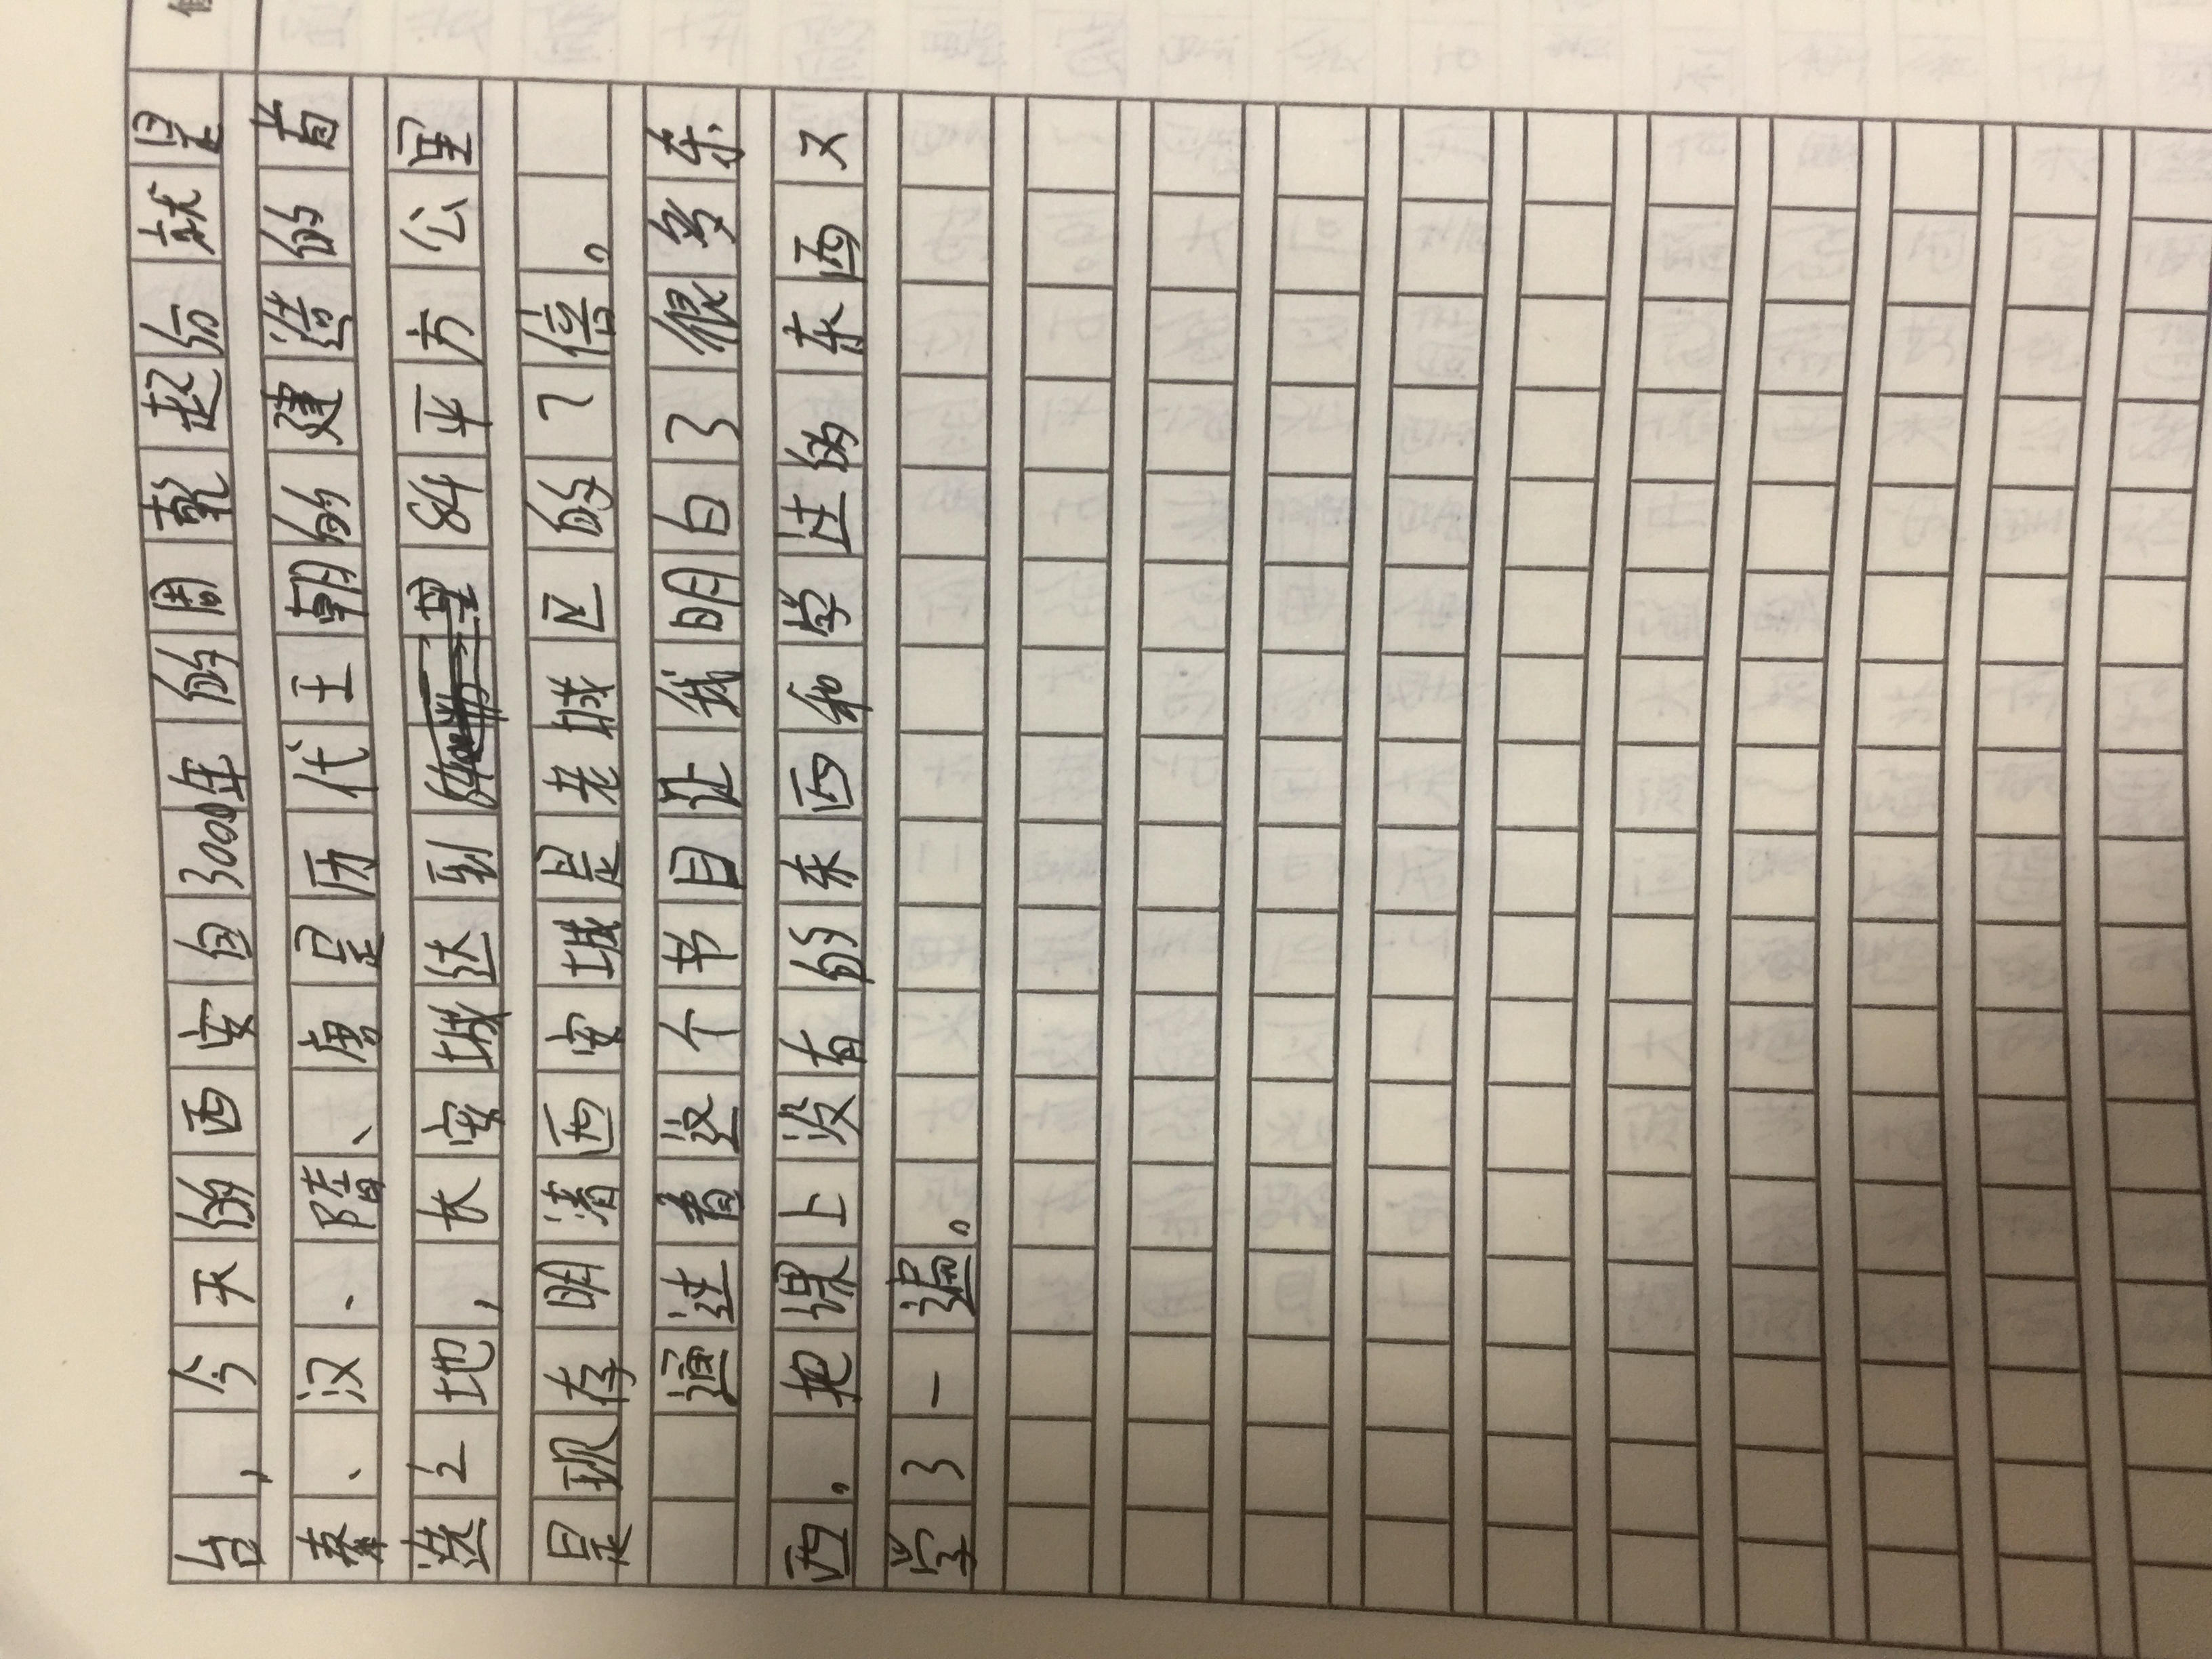 台，今天的西安自3000年的周乾起份就是
秦、汉、隋、唐是历代王朝的建造的首
选之地，长安城达到84平方公里
是现存明清西安城是老城区的7倍。
通过看这个节目让我明白了很多东
西。把课上没有的东西和学过的东西又
学了一遍。